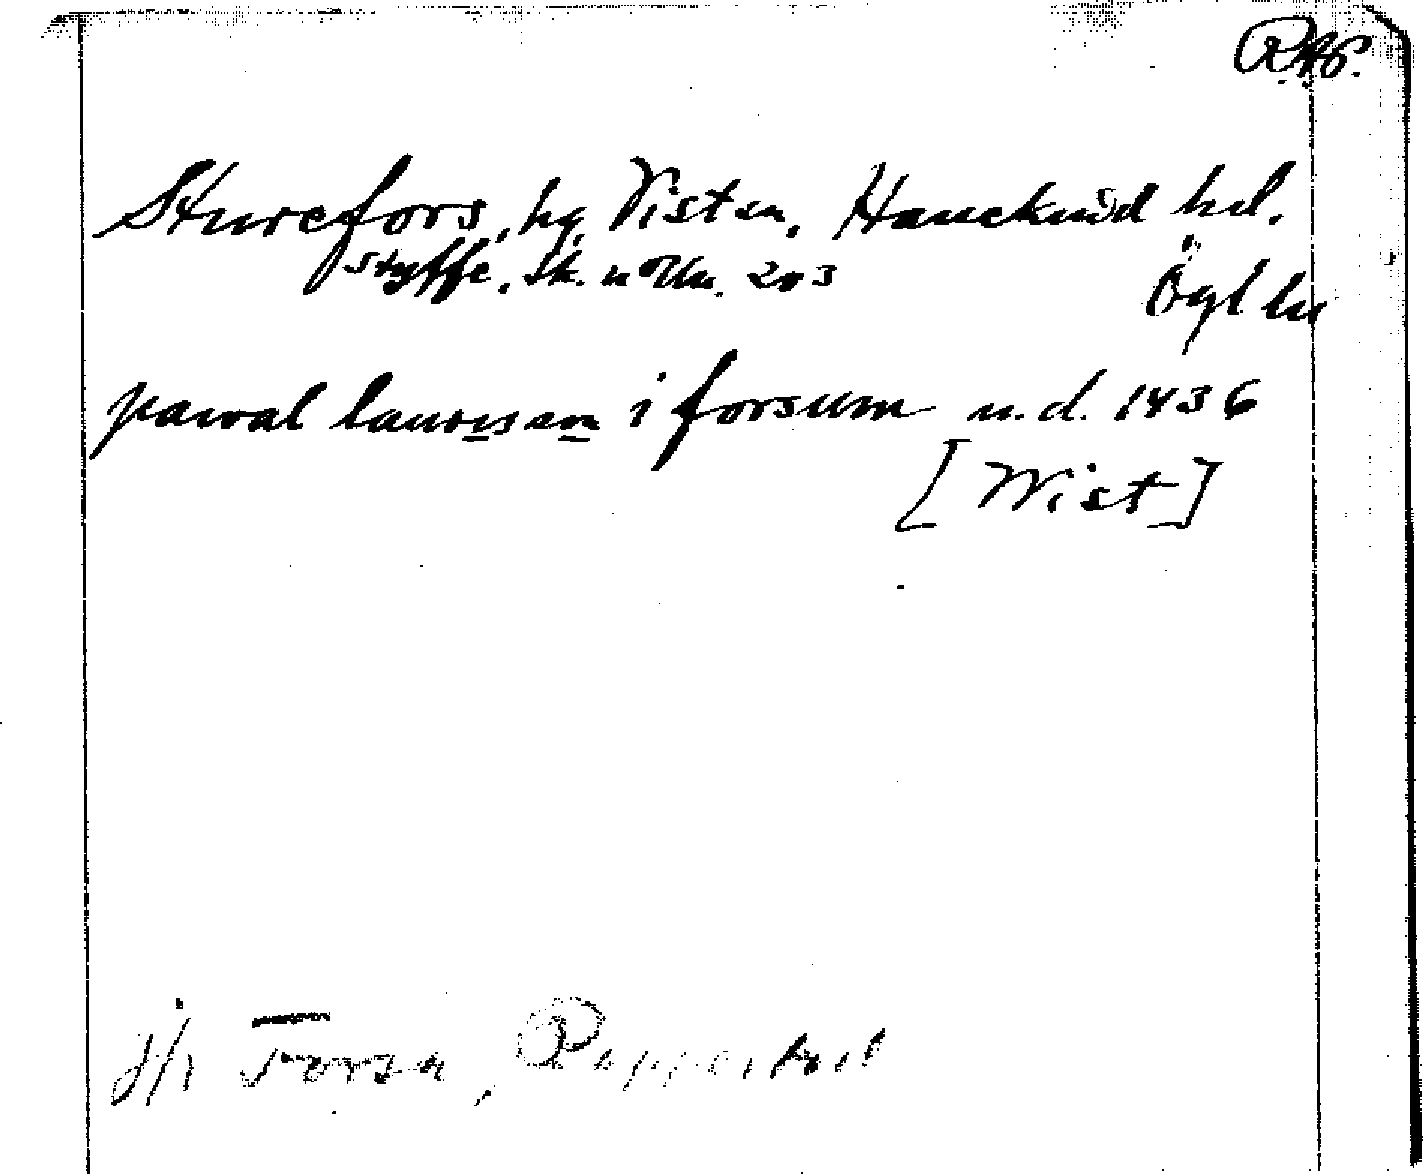 RAP.
Sturefors, hg, Vist sn, Hanekind hd.
Styffe, Sk. u Un. 203
Ögl län
pawal laurissen i forsum u.d. 1436
[Wist]
jfr Forsa, Pappersbruk